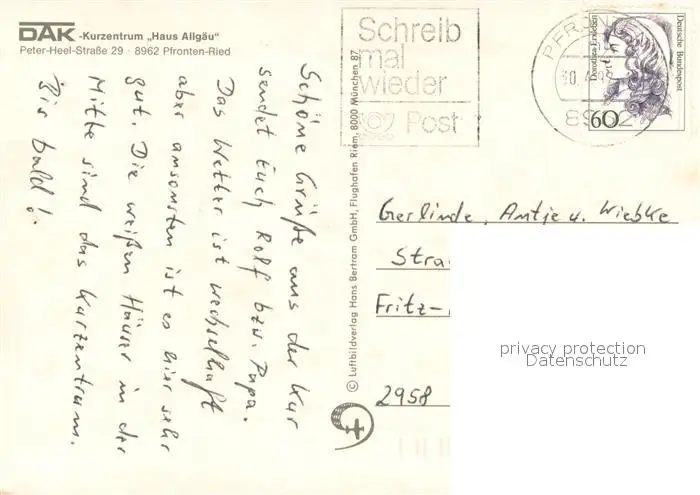 DAK-Kurzentrum „Haus Allgäu"
Peter-Heel-Straße 29 · 8962 Pfronten-Ried
Schöne Grüße aus der Kur
sendet Euch Rolf bzw. Papa.
Das Wetter ist wechselhaft
aber ansonsten ist es hier sehr
gut. Die weißen Häuser in der
Mitte sind das Kurzentrum.
Bis bald!
© Luftbildverlag Hans Bertram GmbH, Flughafen Riem, 8000 München 87
Schreib
mal
wieder
Post
PFRONTEN
8962
Deutsche Bundespost
60
Gerlinde, Antje u. Wiebke
Stra
Fritz-
2958
privacy protection
Datenschutz